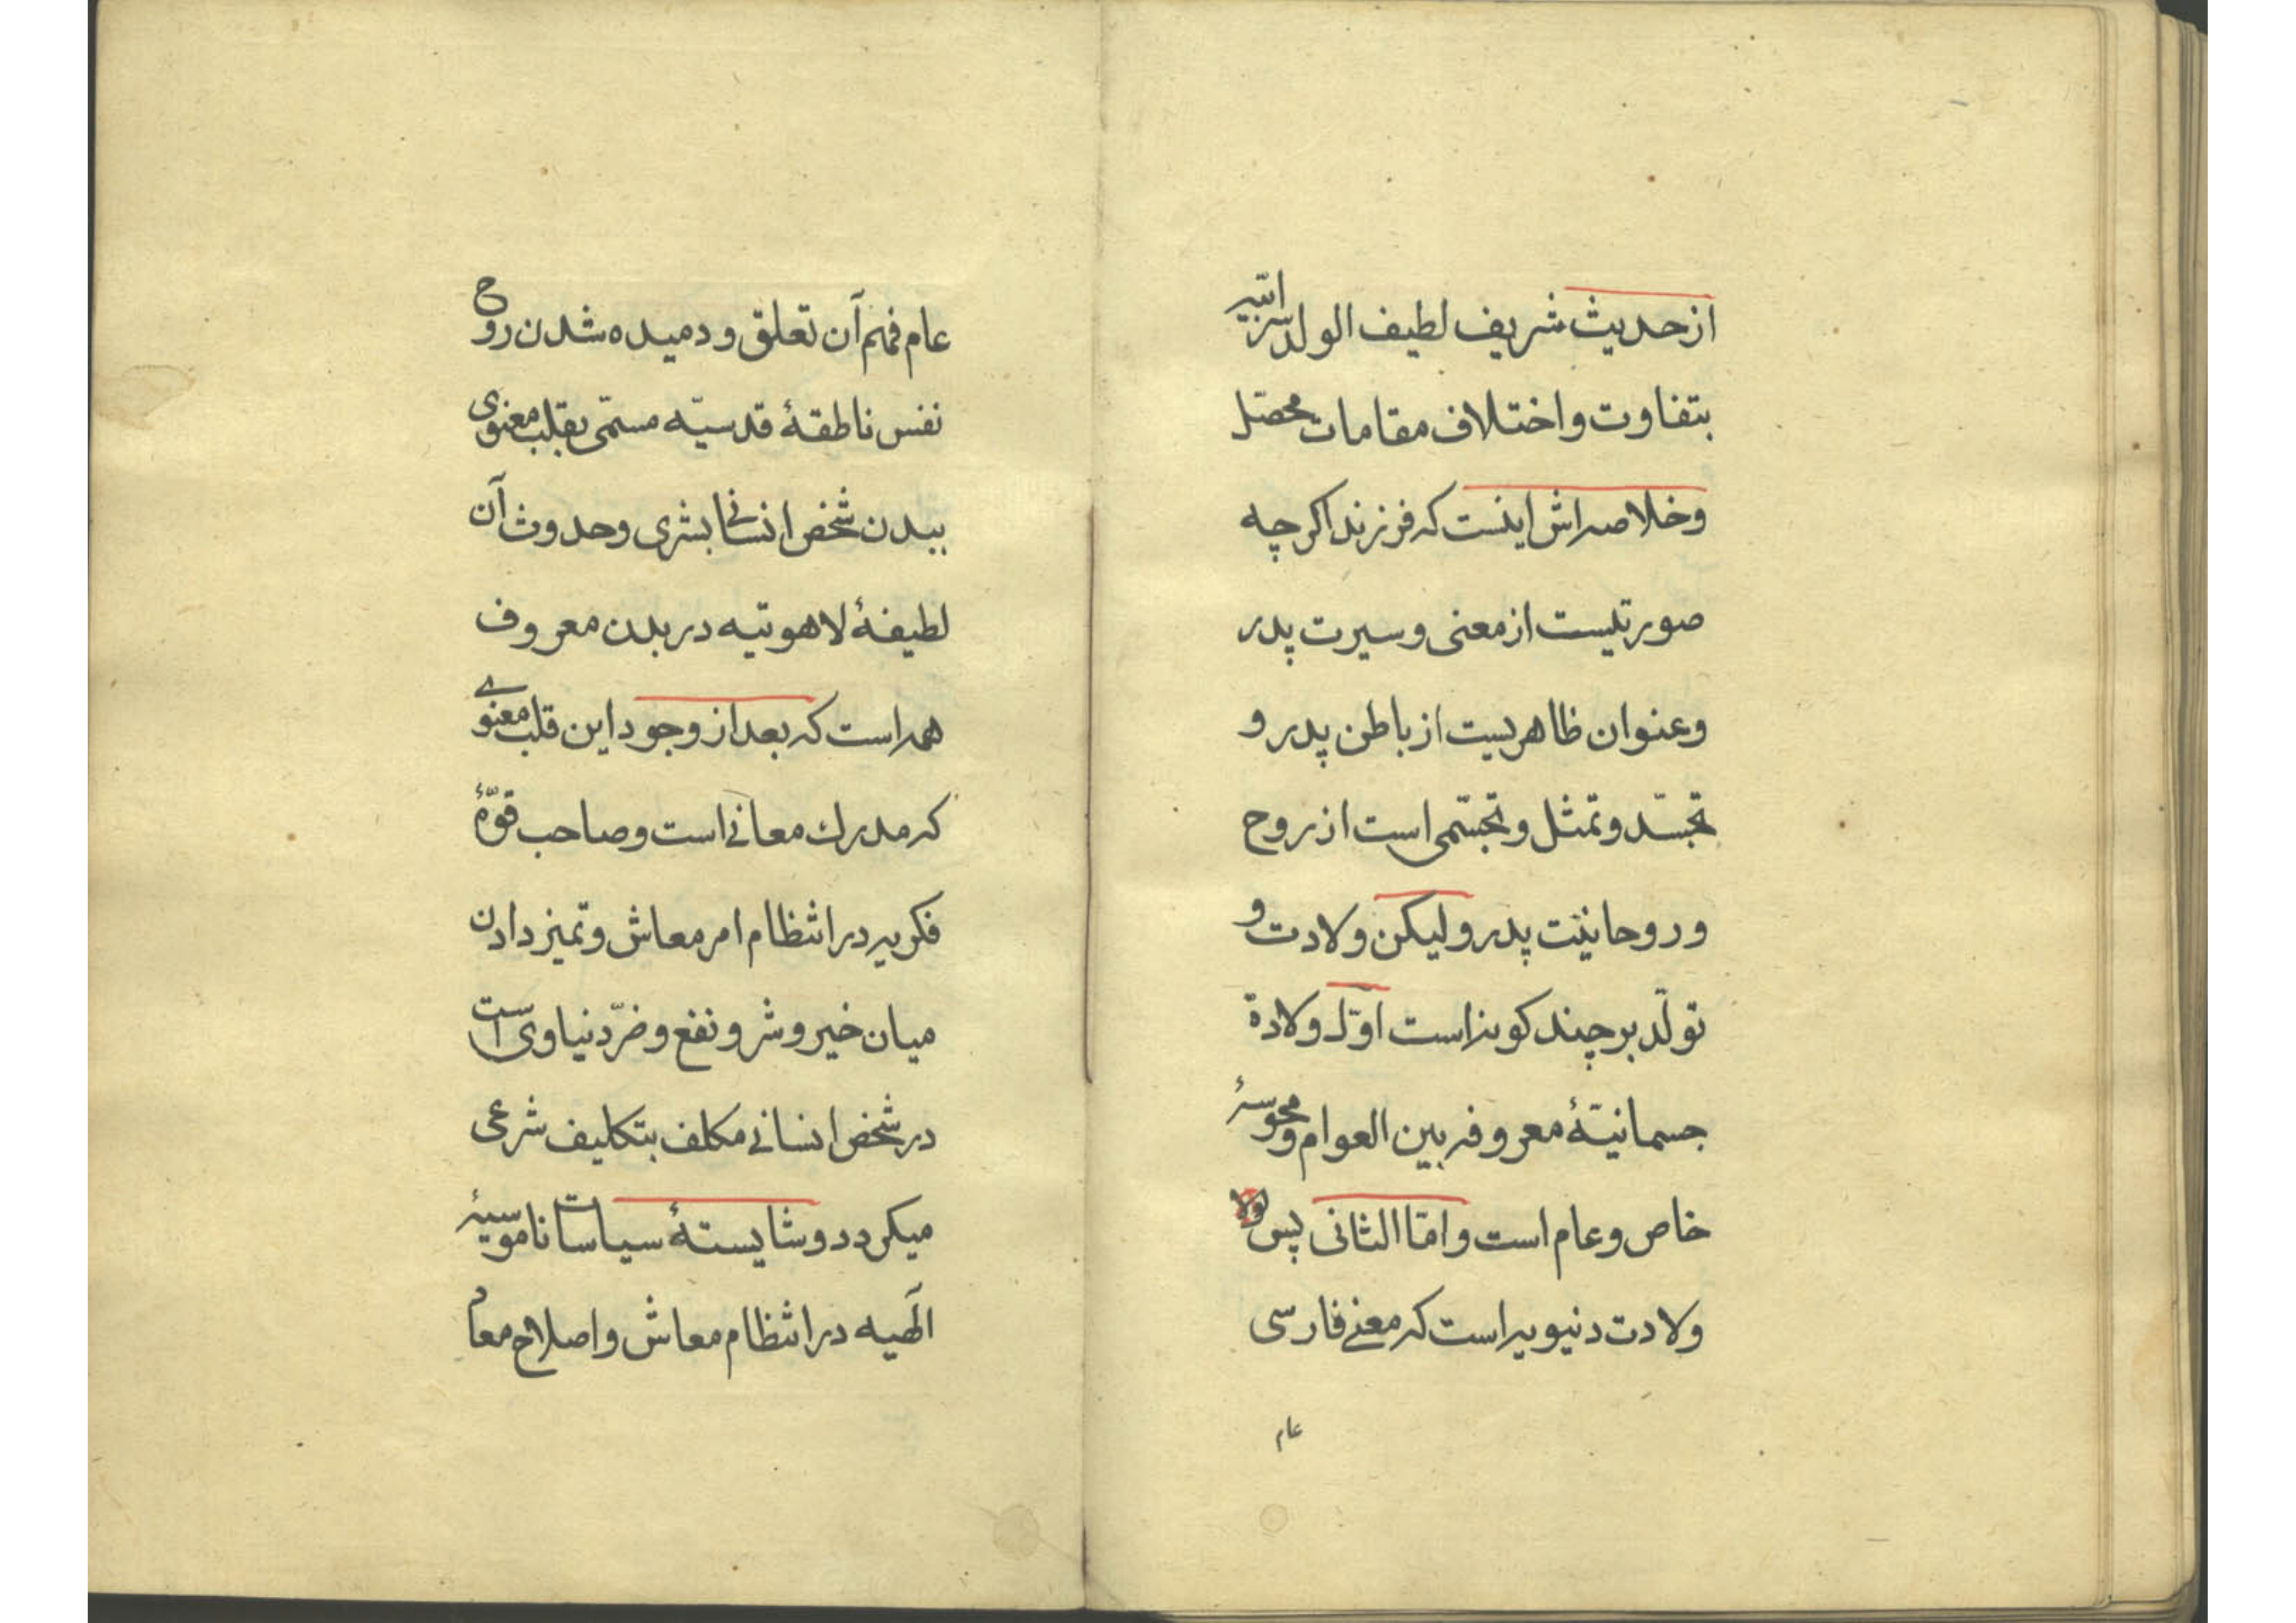 از حدیث شریف لطیف الولد سرّ ابیه
بتفاوت و اختلاف مقامات محصّل
و خلاصه اش اینست که فرزند اکرچه
صورتیست از معنی و سیرت پدر
و عنوان ظاهریست از باطن پدر و
تجسّد و تمثل و تجسّمی است از روح
و روحانیّت پدر ولیکن ولادت و
تولّد بر چند کونه است اوّل ولادة
جسمانیّهٔ معروفه بین العوام و محسوسهٔ
خاص و عام است و امّا الثانی پس
ولادت دنیویه است که معنے فارسی
عام
عام فهم آن تعلق و دمیده شدن روح
نفس ناطقهٔ قدسیّه مسمّی بقلب معنوی
ببدن شخص انسانی بشری و حدوث آن
لطیفهٔ لاهوتیه در بدن معروف
همه است که بعد از وجود این قلب معنوے
که مدرك معانی است و صاحب قوّهٔ
فکریه در انتظام امر معاش و تمیز دادن
میان خیر و شر و نفع و ضرّ دنیاوی است
در شخص انسانے مکلف بتکلیف شرعی
میکردد و شایستهٔ سیاسات ناموسیهٔ
الٓهیه در انتظام معاش و اصلاح معاد